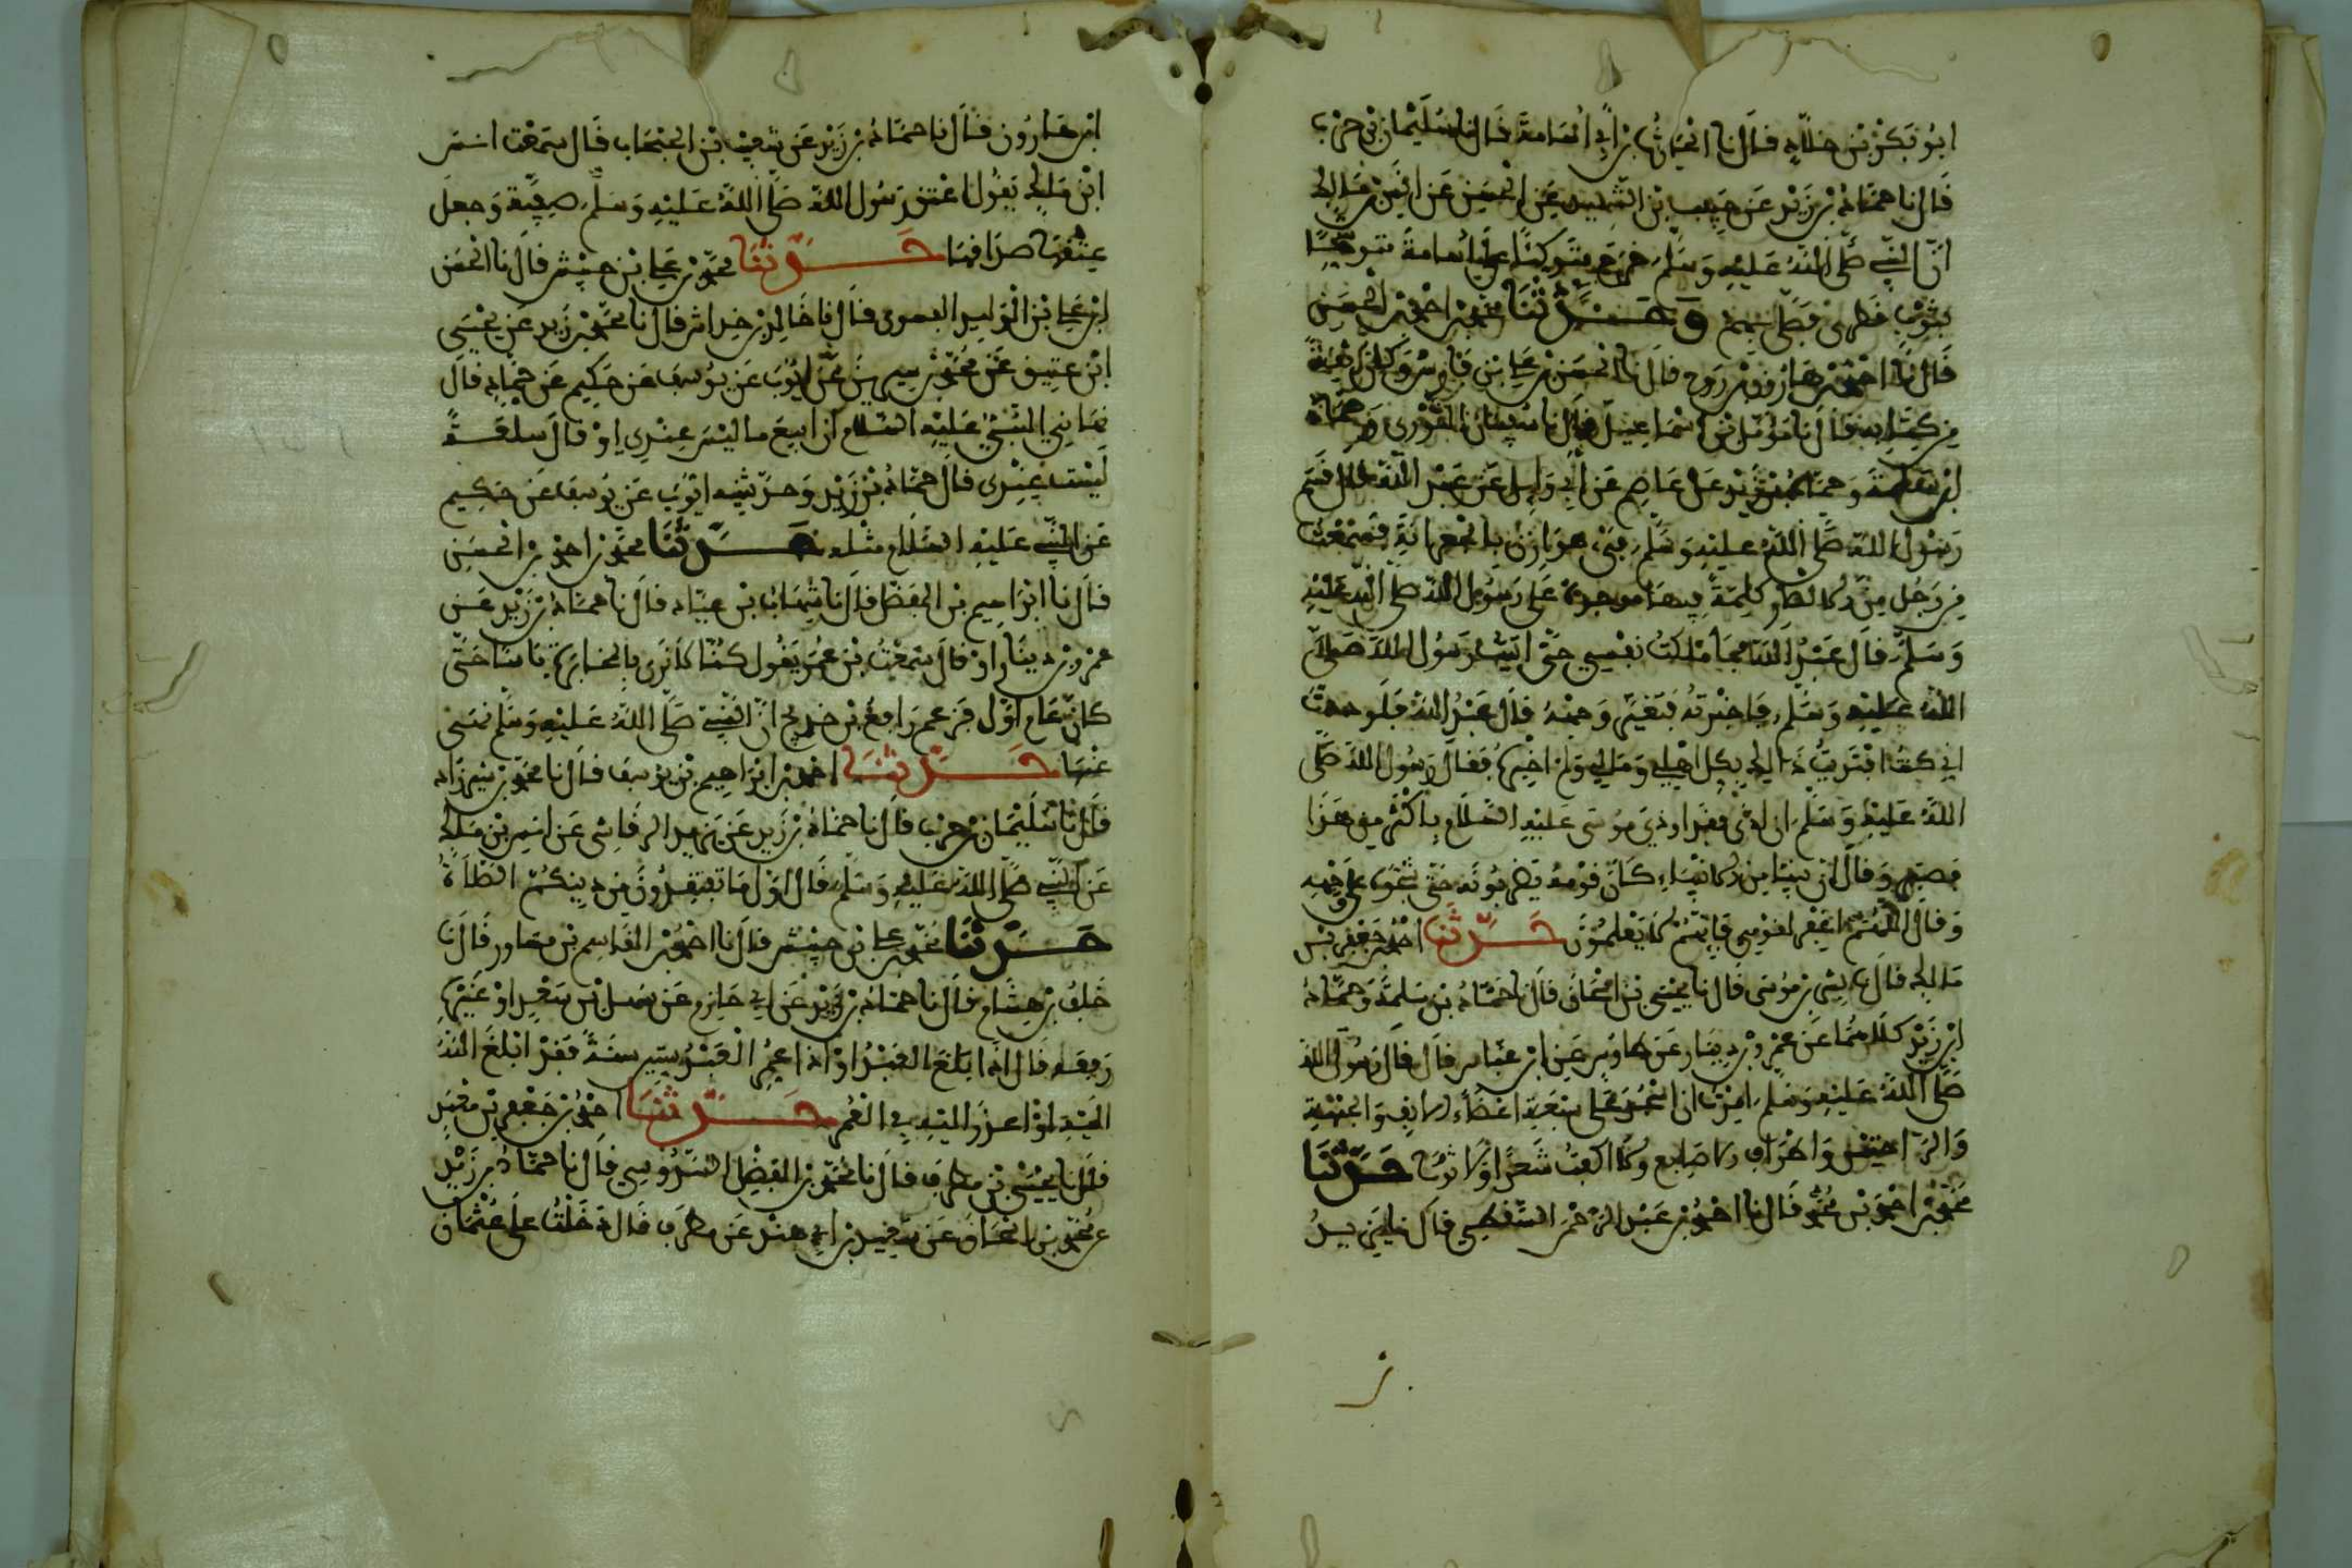 ابو بكر بن خلاد قال نا الحارث بن ابي اسامة قال نا سليمان بن حرب
قال نا حماد بن زيد عن حبيب بن الشهيد عن الحسن عن انس بن ملك
ان النبي صلى الله عليه وسلم خرج متوكئا على اسامة متوشحا
بثوب قطري فصلى بهم وحدثنا محمد بن احمد بن الحسن
قال نا احمد بن هارون بن روح قال نا الحسن بن علي بن
من كتابه قال نا مؤمل بن اسماعيل قال نا سفيان الثوري وحماد
ابن سلمة وحماد بن زيد عن عاصم عن ابي وايل عن عبد الله قال قسم
رسول الله صلى الله عليه وسلم فيء هوازن بالجعرانة فسمعت
من رجل من الانصار كلمة فيها موجدة على رسول الله صلى الله عليه
وسلم قال عبد الله فما ملكت نفسي حتى اتيت رسول الله صلى
الله عليه وسلم فاخبرته فتغير وجهه قال عبد الله فلوددت
اني كنت افتديت ذالك بكل اهلي ومالي ولم اخبره فقال رسول الله صلى
الله عليه وسلم ان اوذى فقد اوذي موسى عليه السلام باكثر من هذا
فصبر وقال ان نبيا من الانبياء كان قومه يضربونه حتى شجوه على وجهه
وقال اللهم اغفر لقومي فانهم لا يعلمون حدثنا احمد بن جعفر بن
مالك قال نا بشر بن موسى قال نا يحيى بن اسحاق قال نا حماد بن سلمة وحماد
ابن زيد كلاهما عن عمرو بن دينار عن طاوس عن ابن عباس قال قال رسول الله
صلى الله عليه وسلم امرت ان اسجد على سبعة اعضاء الانف والجبهة
والراحتين واطراف الاصابع ولا اكفت شعرا ولا ثوبا حدثنا
محمد بن احمد بن محمد قال نا احمد بن عبد الرحمن السقطي قال نا يزيد
ابن هارون قال نا حماد بن زيد عن شعيب بن الحبحاب قال سمعت انس
ابن ملك يقول اعتق رسول الله صلى الله عليه وسلم صفية وجعل
عتقها صداقها حدثنا محمد بن علي بن حبيش قال نا الحسن
ابن علي بن الوليد الفسوى قال نا خالد بن خداش قال نا محمد بن زيد عن يحيى
ابن عتيق عن محمد بن سيرين عن ايوب عن يوسف عن حكيم عن حماد قال
نهاني النبي عليه السلام ان ابيع ما ليس عندي او قال سلعة
ليست عندي قال حماد بن زيد وحدثنيه ايوب عن يوسف عن حكيم
عن النبي عليه السلام مثله حدثنا محمد بن احمد بن الحسن
قال نا ابراهيم بن المفضل قال نا شهاب بن عباد قال نا حماد بن زيد عن
عمرو بن دينار او قال سمعت بن عمر يقول كنا لا نرى بالمخابرة باسا حتى
كان عام اول فزعم رافع بن خديج ان النبي صلى الله عليه وسلم نهى
عنها حدثنا احمد بن ابراهيم بن يوسف قال نا محمد بن
قال نا سليمان بن حرب قال نا حماد بن زيد عن يزيد الرقاشي عن انس بن ملك
عن النبي صلى الله عليه وسلم قال اول ما تفتقدون من دينكم الصلاة
حدثنا محمد بن علي بن حبيش قال نا احمد بن القاسم بن مساور قال نا
خلف بن هشام قال نا حماد بن زيد عن ابي حازم عن سهل بن سعد او غيره
رفعه قال اذا بلغ العبد او اذا عمر العبد ستين سنة فقد ابلغ الله
اليه او اعذر اليه في العمر حدثنا احمد بن جعفر بن معبد
قال نا يحيى بن مطرف قال نا محمد بن الفضل السدوسي قال نا حماد بن زيد
عن محمد بن اسحاق عن سعيد بن ابي هند عن مطرف قال دخلت على عثمان